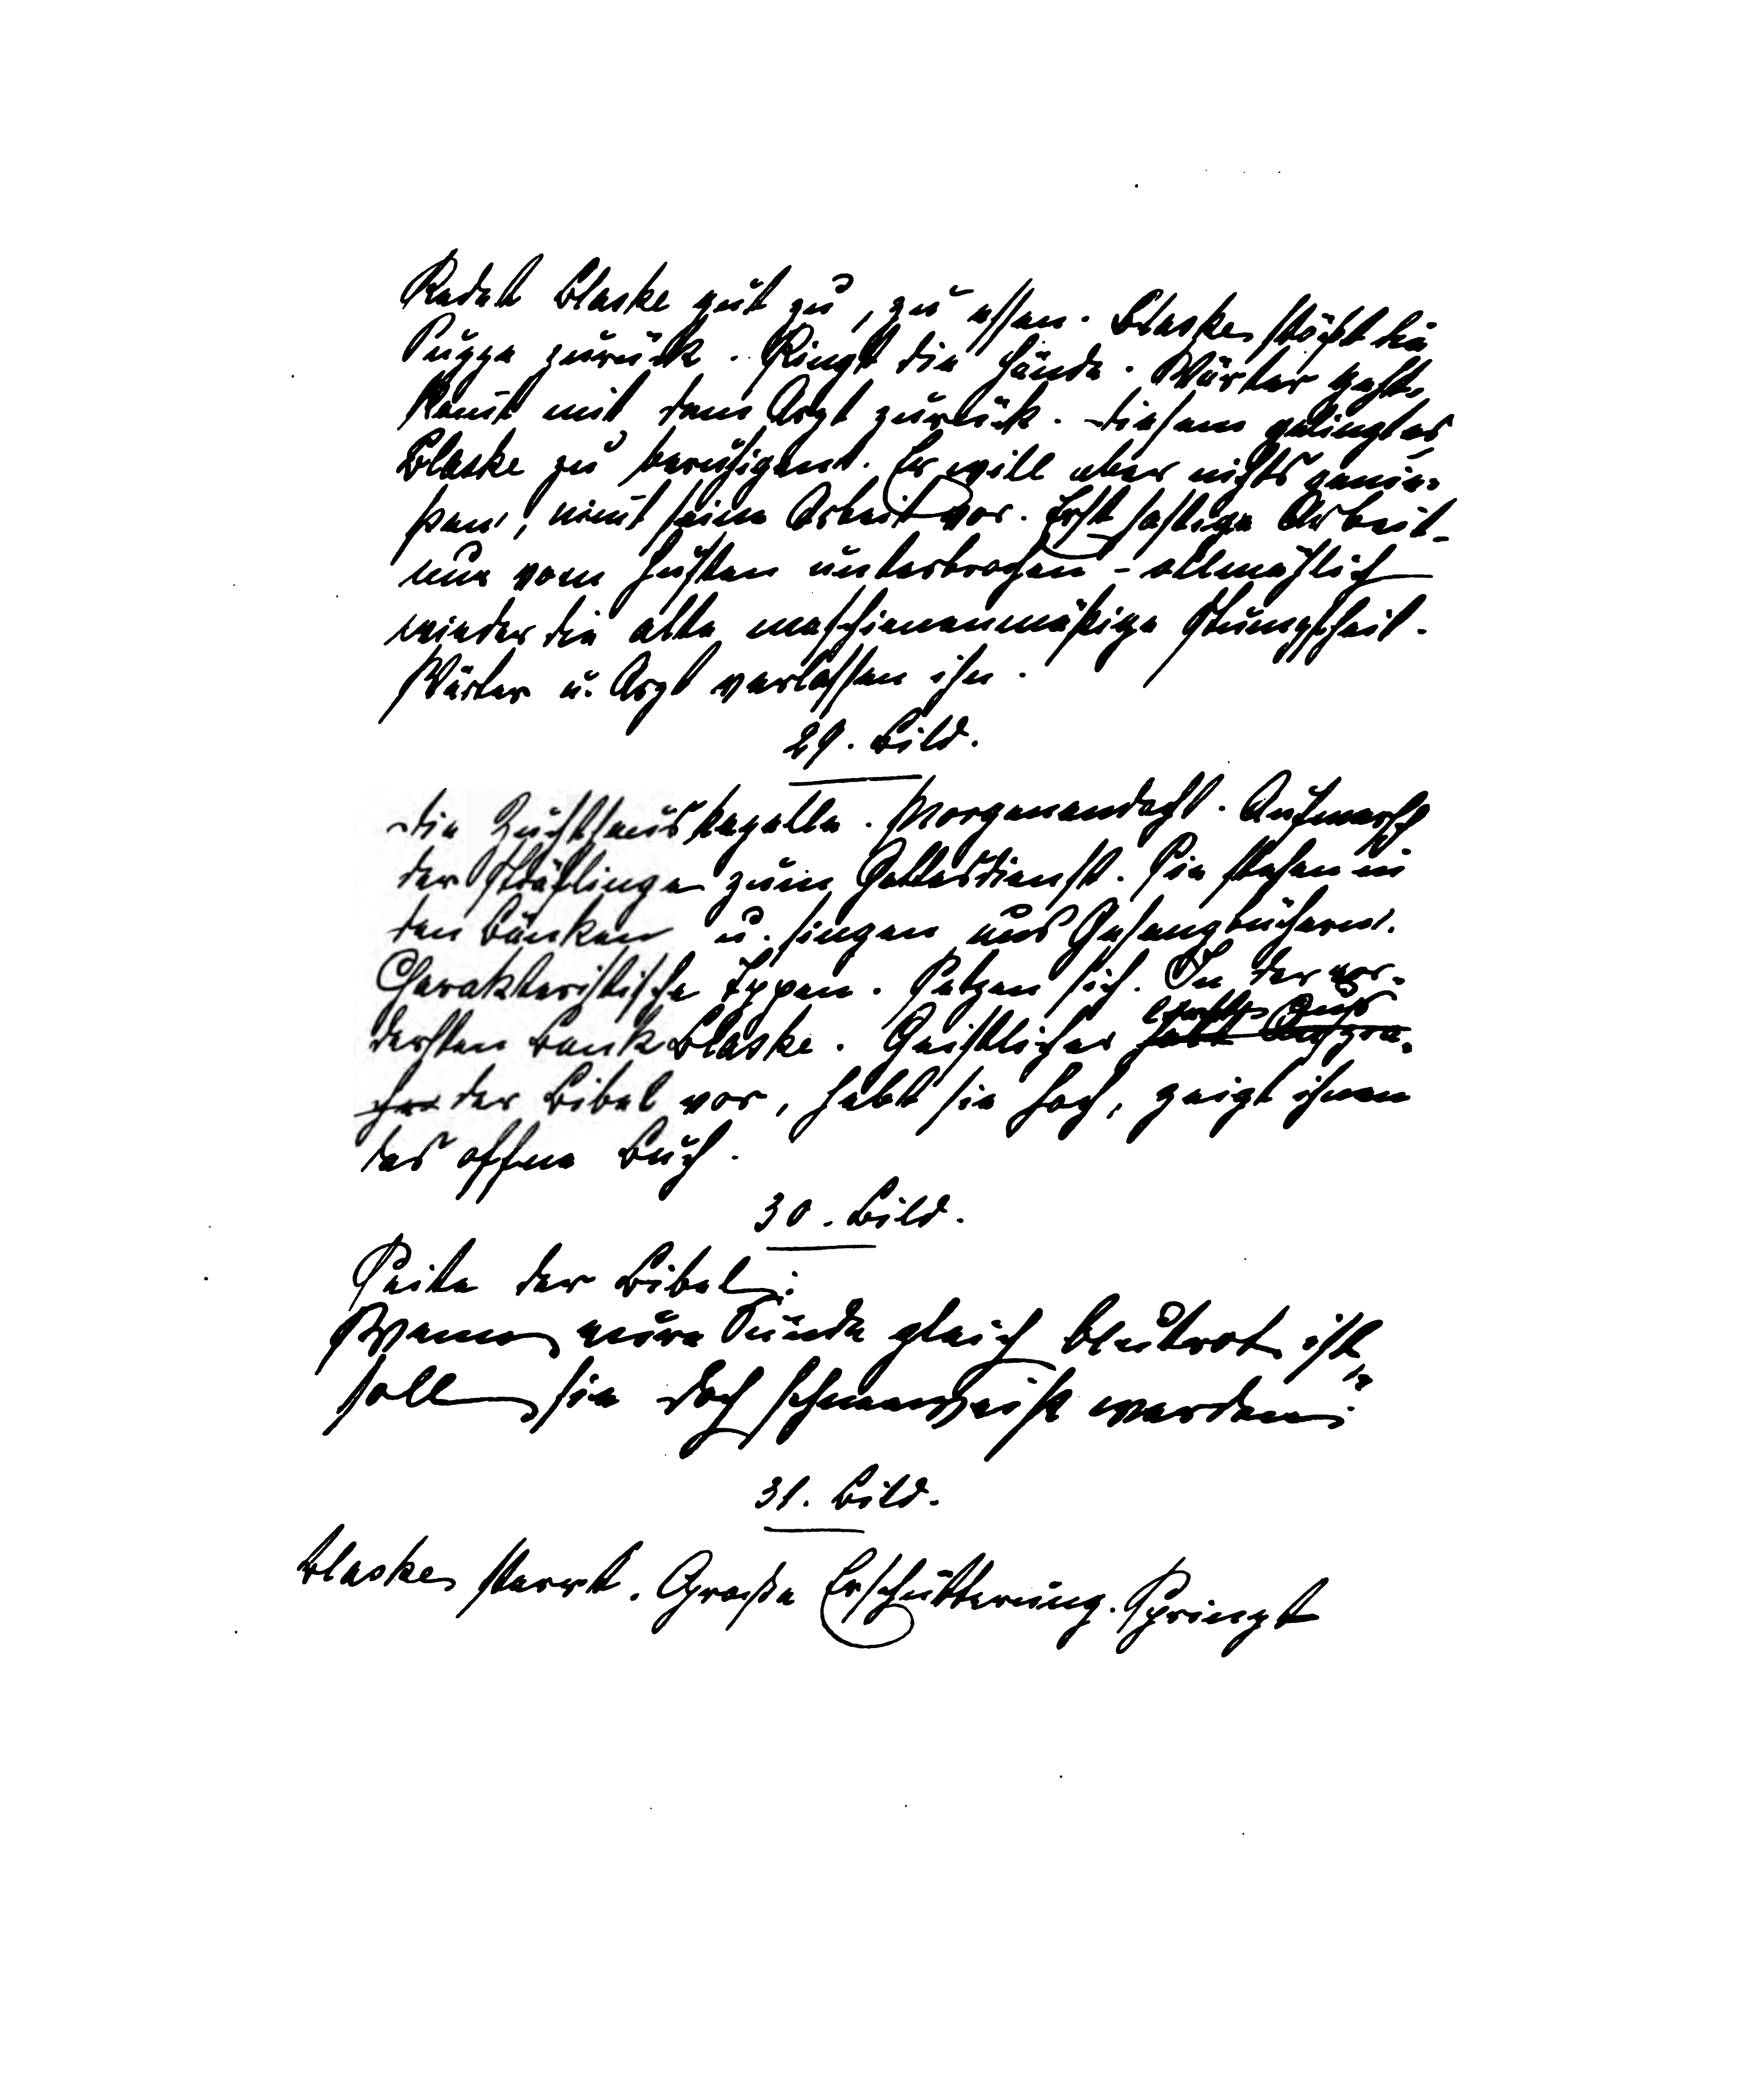 Redet Blaske gut zu, zu essen. Blaske stößt die
Suppe zurück. Ringt die Hände. Wärter geht,
kom̄t mit dem Arzt zurück. Diesem gelingt es
Blaske zu beruhigen. Er will aber nichts genie-
ßen, nim̄t seine Arbeit vor. Erst hastige Arbeit -
nur vom Husten unterbrochen - allmählich
wieder die alte maschienenmäßige Stumpfheit.
Wärter u. Arzt verlassen ihn.
29. Bild.
Die Zuchthauskapelle. Morgenandacht. Aufmarsch
der Sträflinge zum Gottesdienst. Sie stehen in
den Bänken u. singen aus Gesangbüchern.
Charakteristische Typen. Setzen sich. In der vor-
dersten Bank Blaske. Geistlicher hebt
aus
der Bibel vor, hebt sie hoch, zeigt ihnen
das offne Buch.
30. Bild.
Seite der Bibel:
Wenn eure Sünde gleich blutrot ist,
soll sie doch schneeweiß werden.
31. Bild.
Blaske starrt. Große Erschütterung. Springt